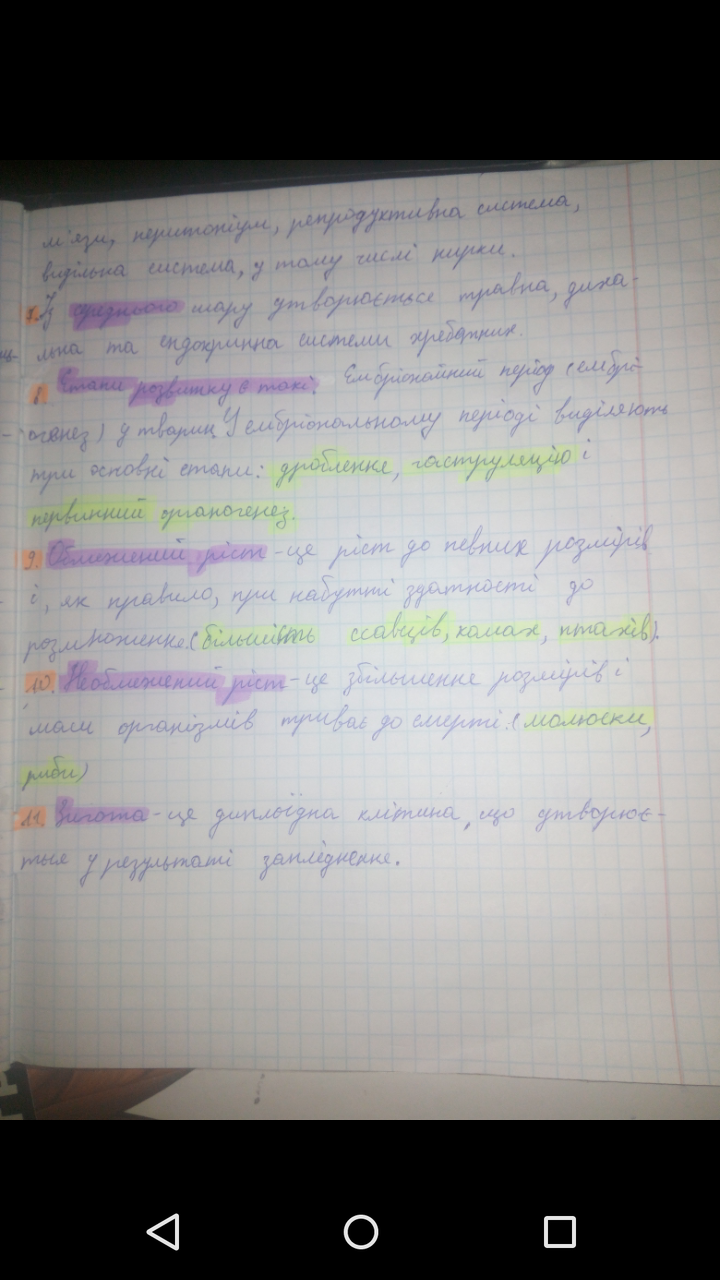 м'язи, перитоніум, репродуктивна система,
видільна система, у тому числі нирки.
7. У середнього шару утворюється травна, диха-
льна та ендокринна системи хребетних.
8. Етапи розвитку є такі: Ембріональний період (ембрі-
огенез) у тварин У ембріональному періоді виділяють
три основні етапи: дроблення, гаструляцію і
первинний органогенез.
9. Обмежений ріст - це ріст до певних розмірів
і, як правило, при набутті здатності до
розмноження. (більшість ссавців, комах, птахів).
10. Необмежений ріст - це збільшення розмірів і
маси організмів триває до смерті. (молюски,
риби)
11. Зигота - це диплоїдна клітина, що утворює-
ться у результаті запліднення.